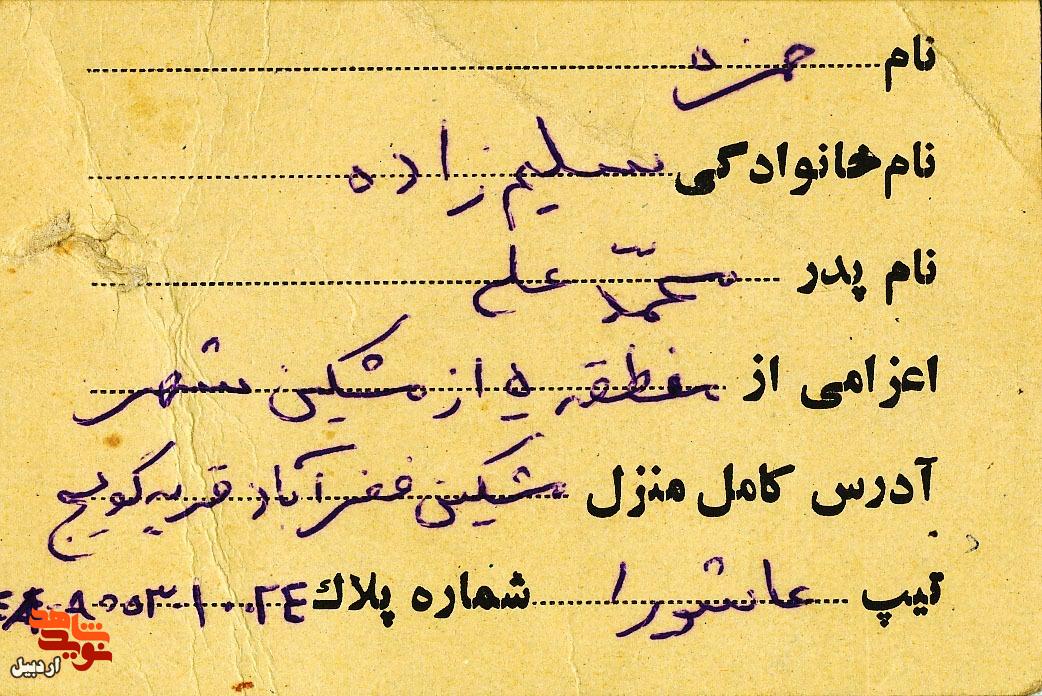 نام حمزه
نام خانوادگی سلیم زاده
نام پدر محمّد علی
اعزامی از منطقه ۵ از مشکین شهر
آدرس کامل منزل مشکین فخرآباد قریه کویج
تیپ عاشورا شماره پلاك
شاهد
نوید
اردبیل